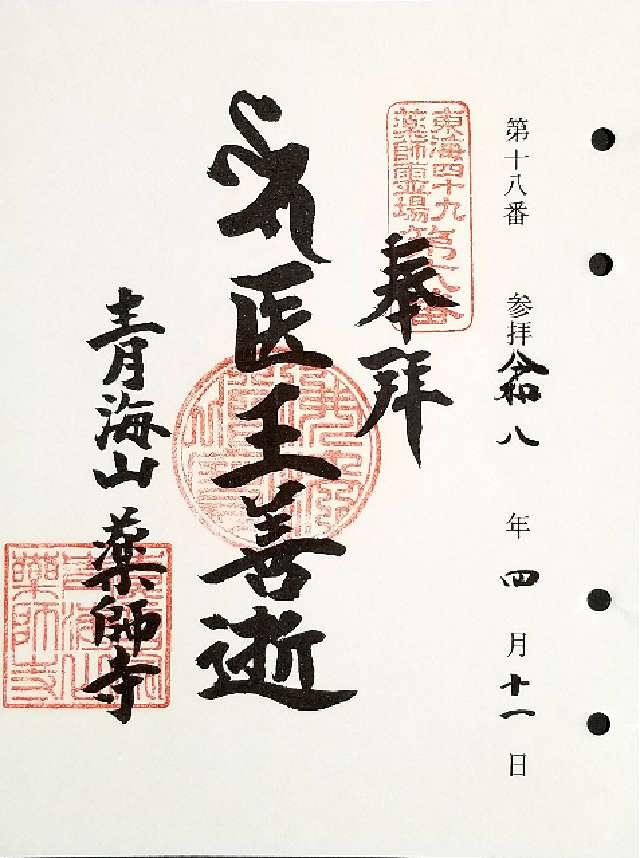 第十八番 参拝 令和八年四月十一日
東海四十九
薬師霊場
第十八番
奉拝
医王善逝
青海山 薬師寺